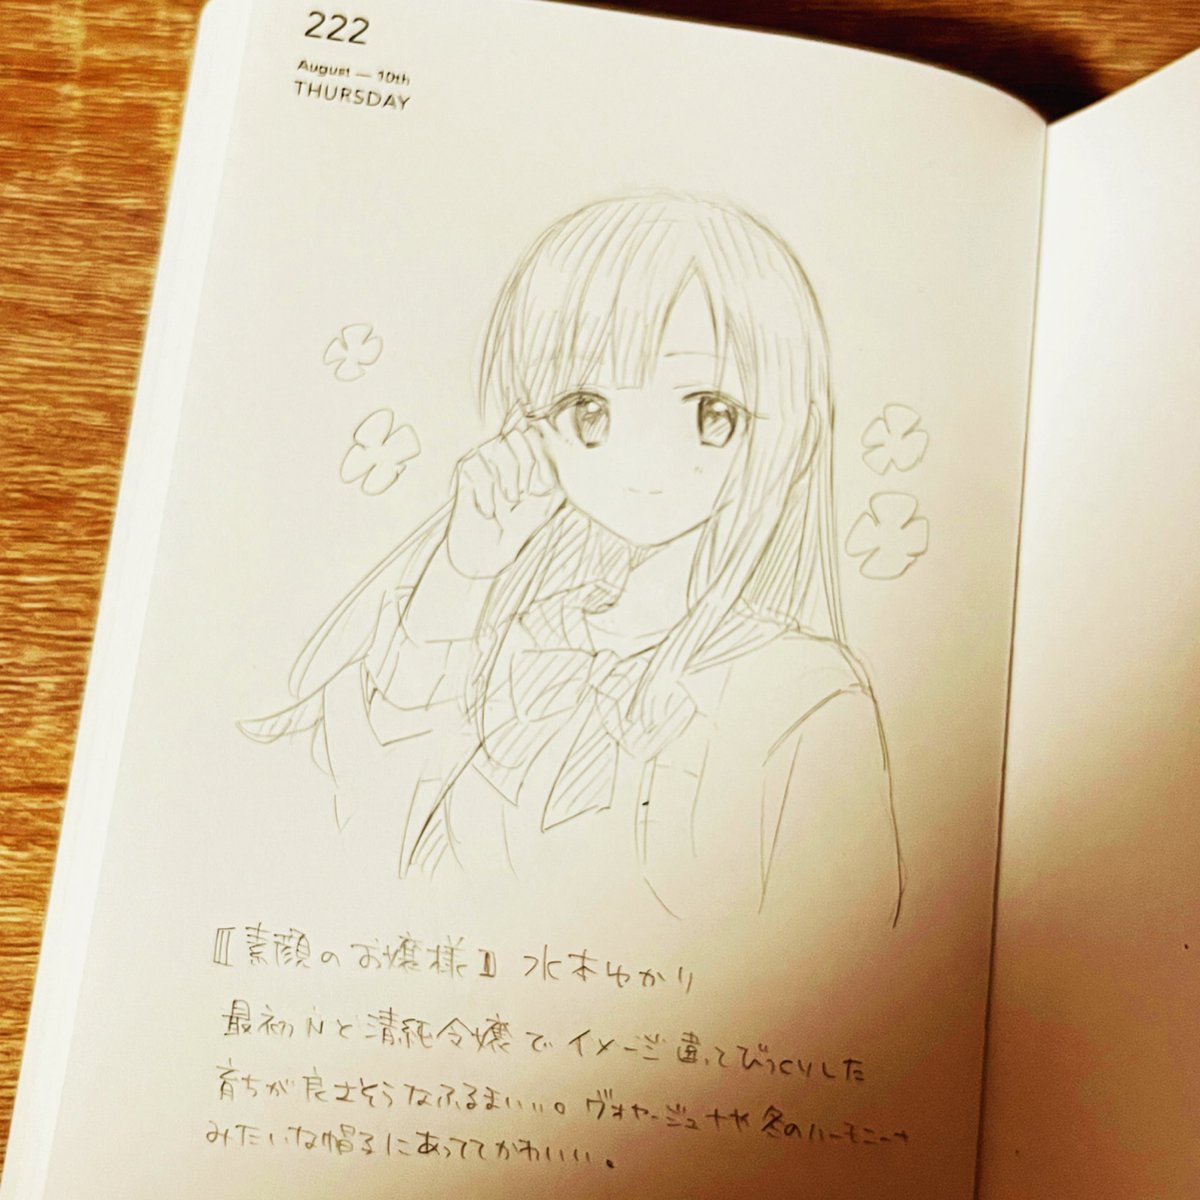 222
August — 10th
THURSDAY
【素顔のお嬢様】水本ゆかり
最初Nと清純令嬢でイメージ違ってびっくりした
育ちが良さそうなふるまいいい。ヴォヤージュナや冬のハーモニーナ
みたいな帽子にあっててかわいい。